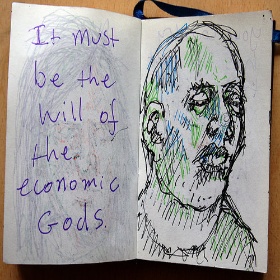 It must
be the
will of
the
economic
Gods.